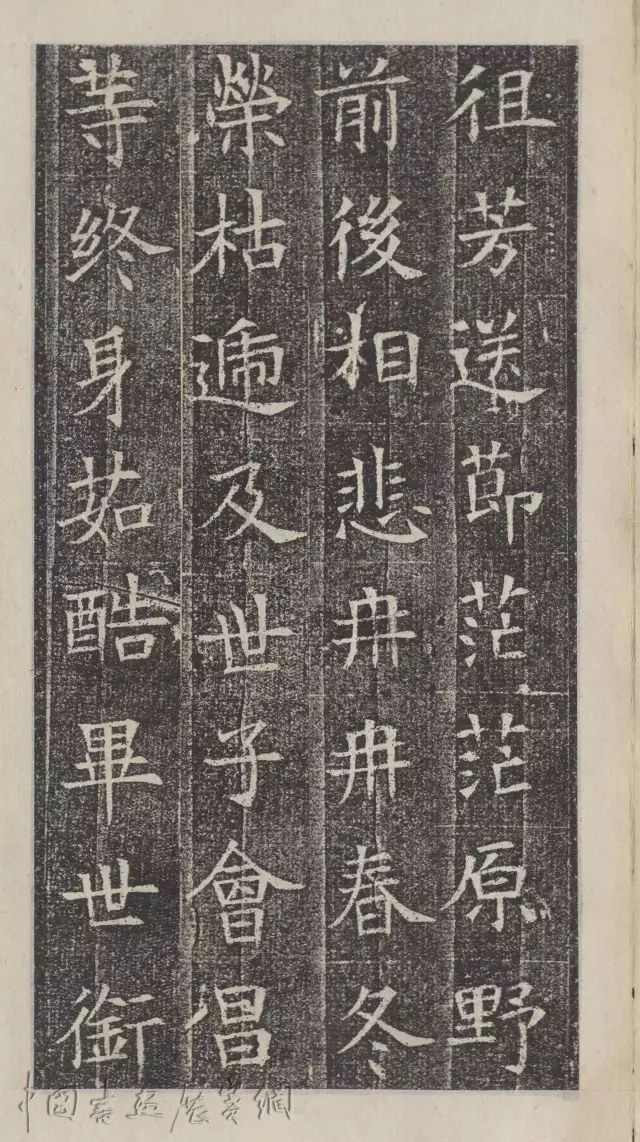 徂芳送節茫茫原野
前後相悲冉冉春冬
榮枯遞及世子會昌
等終身茹酷畢世銜
中国书法展赛網